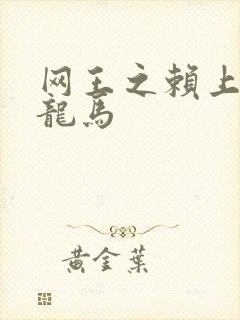 网王之賴上
龍馬
黃金葉